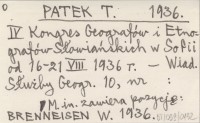 PATEK T. 1936.
IV Kongres Geografów i Etno-
grafów Słowiańskich w Sofii
od 16-21 VIII 1936 r. - Wiad.
Służby Geogr. 10, nr :
M.in. zawiera pozycję:
BRENNEISEN W. 1936.